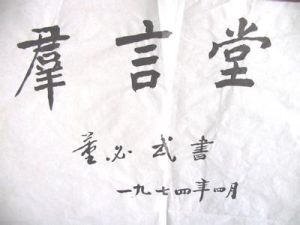 羣言堂
董必武書
一九七四年四月